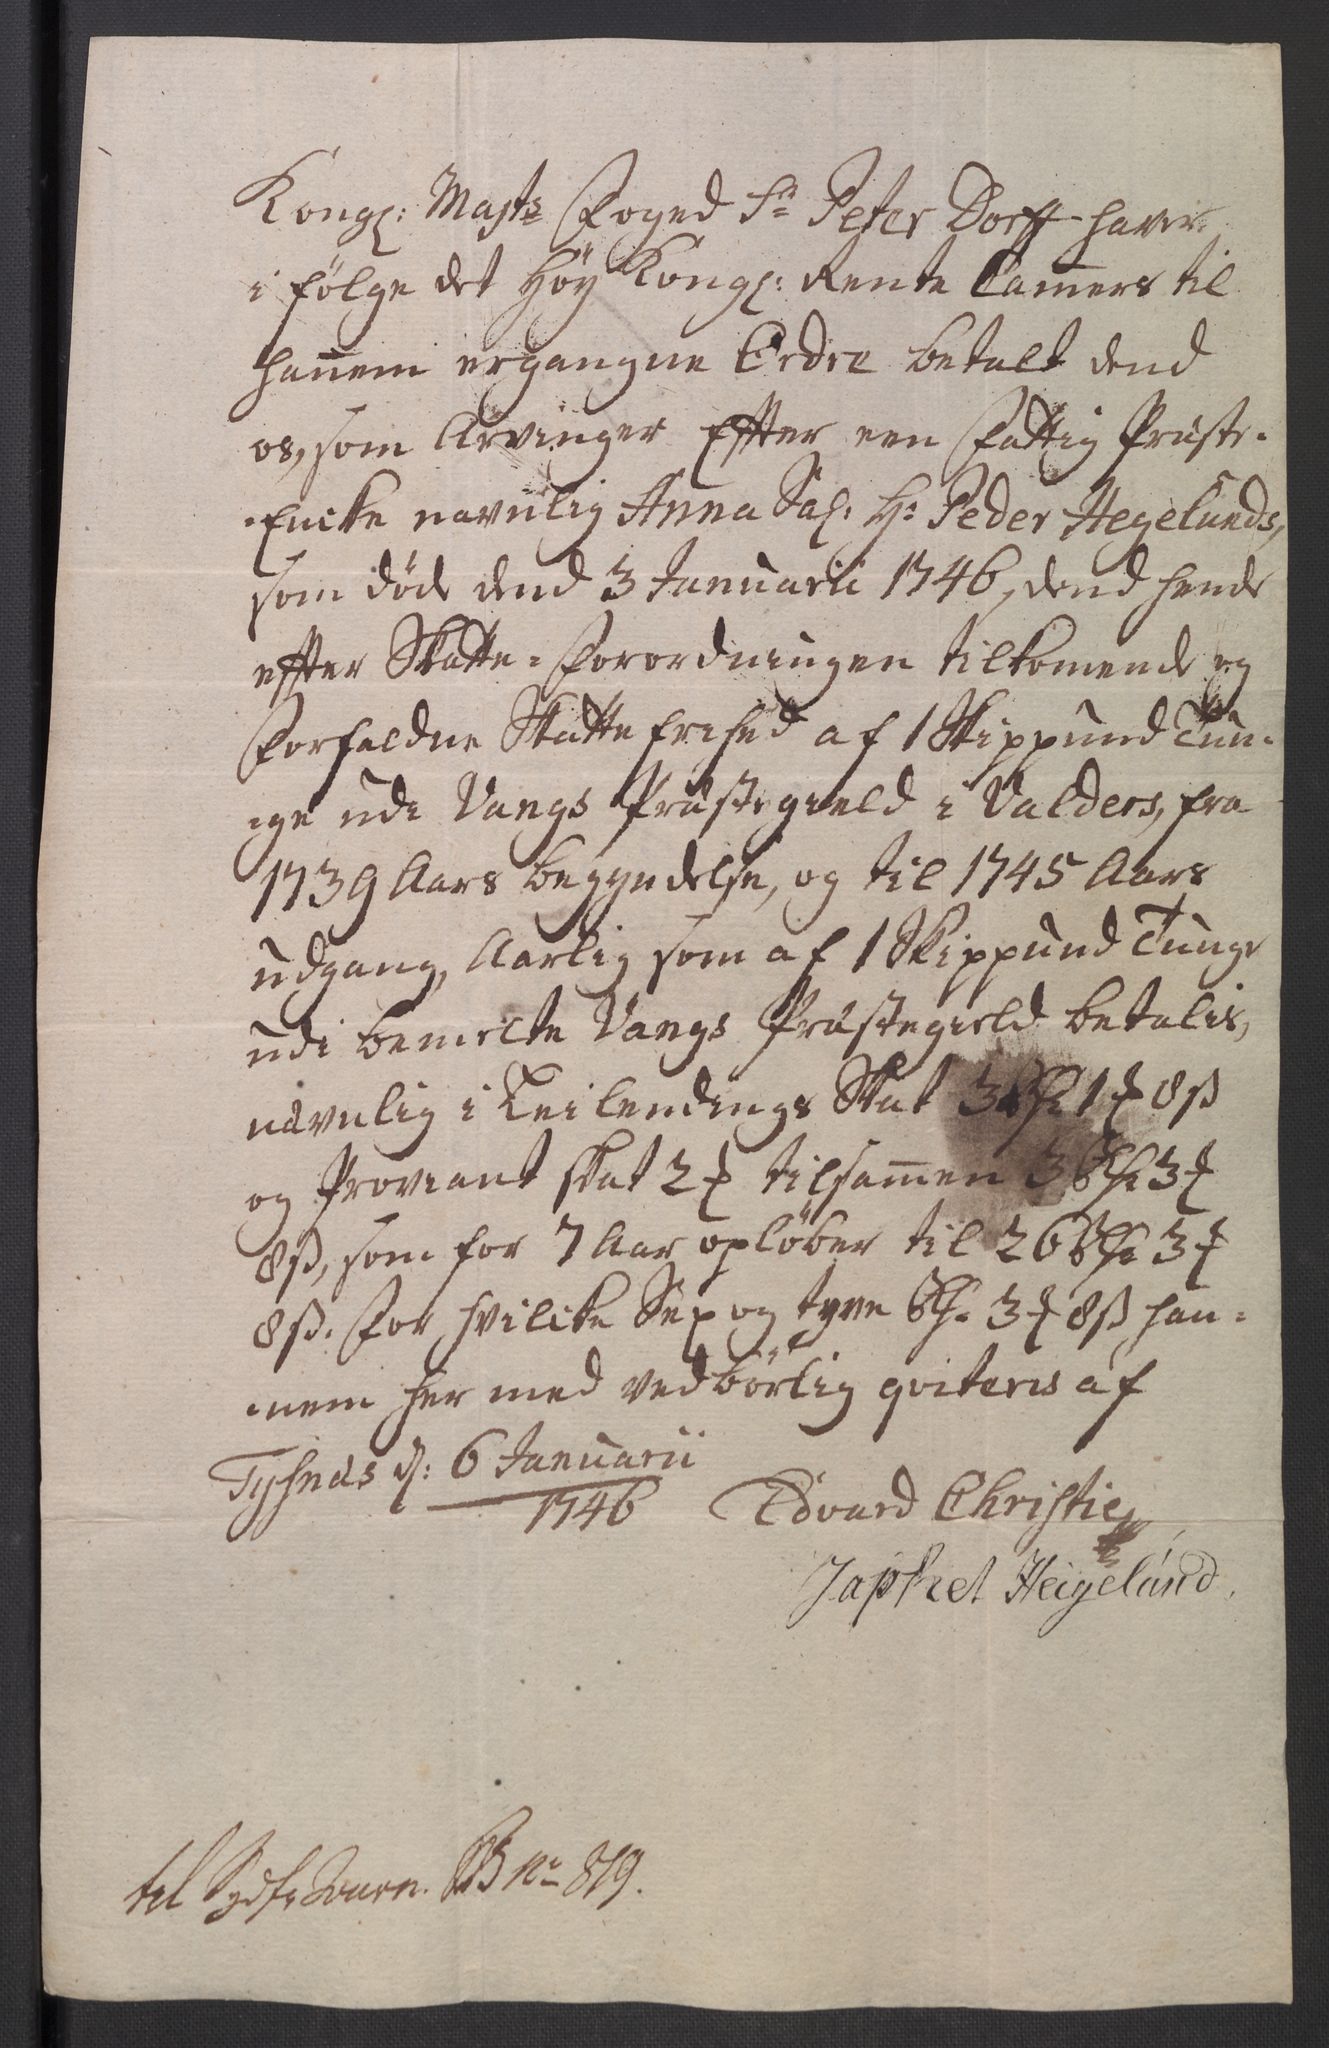 Kongl: Majts Foged Sr Peter Dorff haver
i følge det Höy Kongl: Rente Camers til
hannem ergangne Ordre betalt dend
os, som Arvinger Effter een Fattig Præste-
-Encke navnlig Anna Sal: Hr: Peder Hegelunds,
som døde dend 3 Januarii 1746, dend hende
effter Skatte-Forordningen tilkomende og
Forfaldne Skatte frihed af 1 Skippund Tun-
-ge udi Vangs Præstegield i Valders, fra
1739 Aars begyndelse, og til 1745 Aars
udgang, Aarlig som af 1 Skippund Tunge
udi bemelte Vangs Præstegield betalis,
navnlig i Leilendings Skat 3 Rdr 1 ₰ 8 ß
og Proviant skat 2 ₰ tilsamen 3 Rdr 3 ₰
8 ß, som for 7 Aar opløber til 26 Rdr 3 ₰
8 ß. For hvilcke Sex og tyve Rdr 3 ₰ 8 ß han-
-nem her med vedbörlig qviteris af
Tysnæs d: 6 Januarii
1746
Edvard Christie
Japhet Heigelund.
til Nr 819.